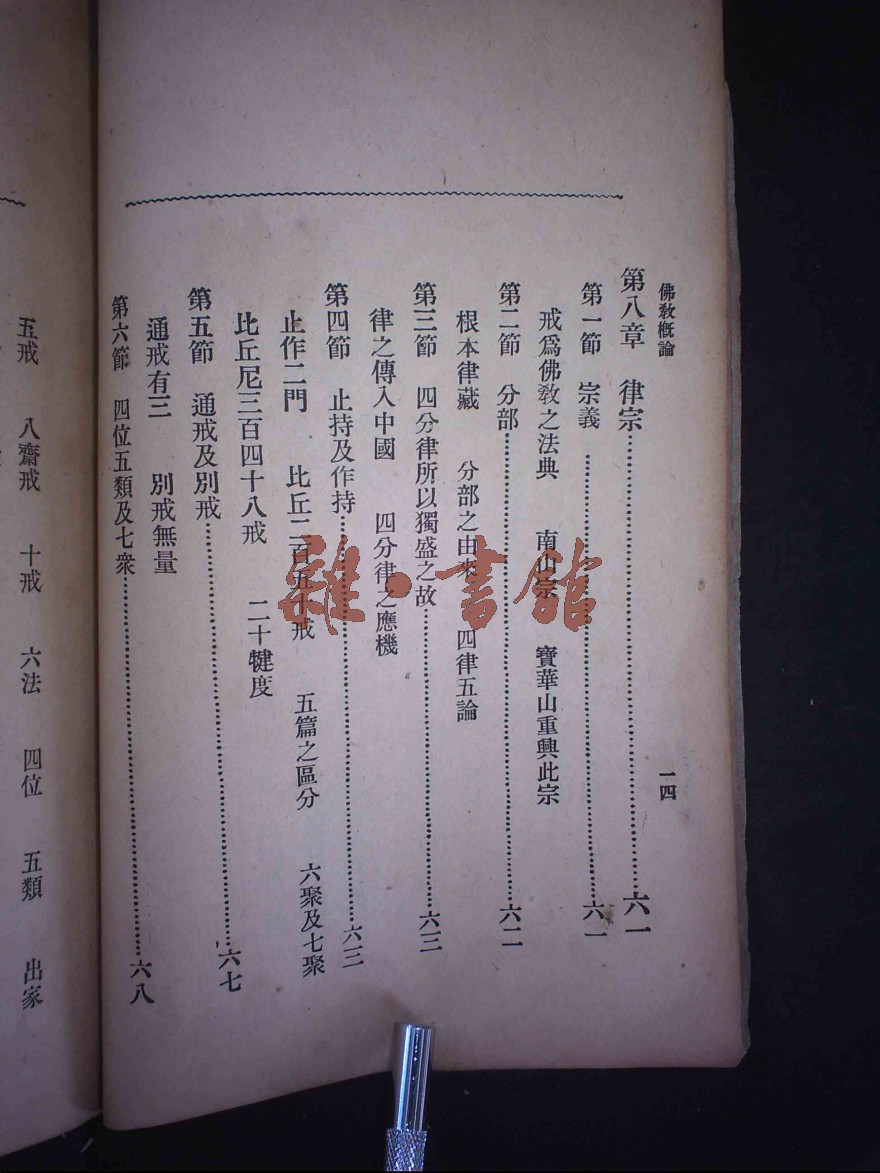 佛敎概論
一四
第八章 律宗……六一
第一節 宗義……六一
戒爲佛敎之法典 南山宗 寶華山重興此宗
第二節 分部……六二
根本律藏 分部之由來 四律五論
第三節 四分律所以獨盛之故……六三
律之傳入中國 四分律之應機
第四節 止持及作持……六三
止作二門 比丘二百五十戒 五篇之區分 六聚及七聚
比丘尼三百四十八戒 二十犍度
第五節 通戒及別戒……六七
通戒有三 別戒無量
第六節 四位五類及七衆……六八
五戒 八齋戒 十戒 六法 四位 五類 出家
雜·書館